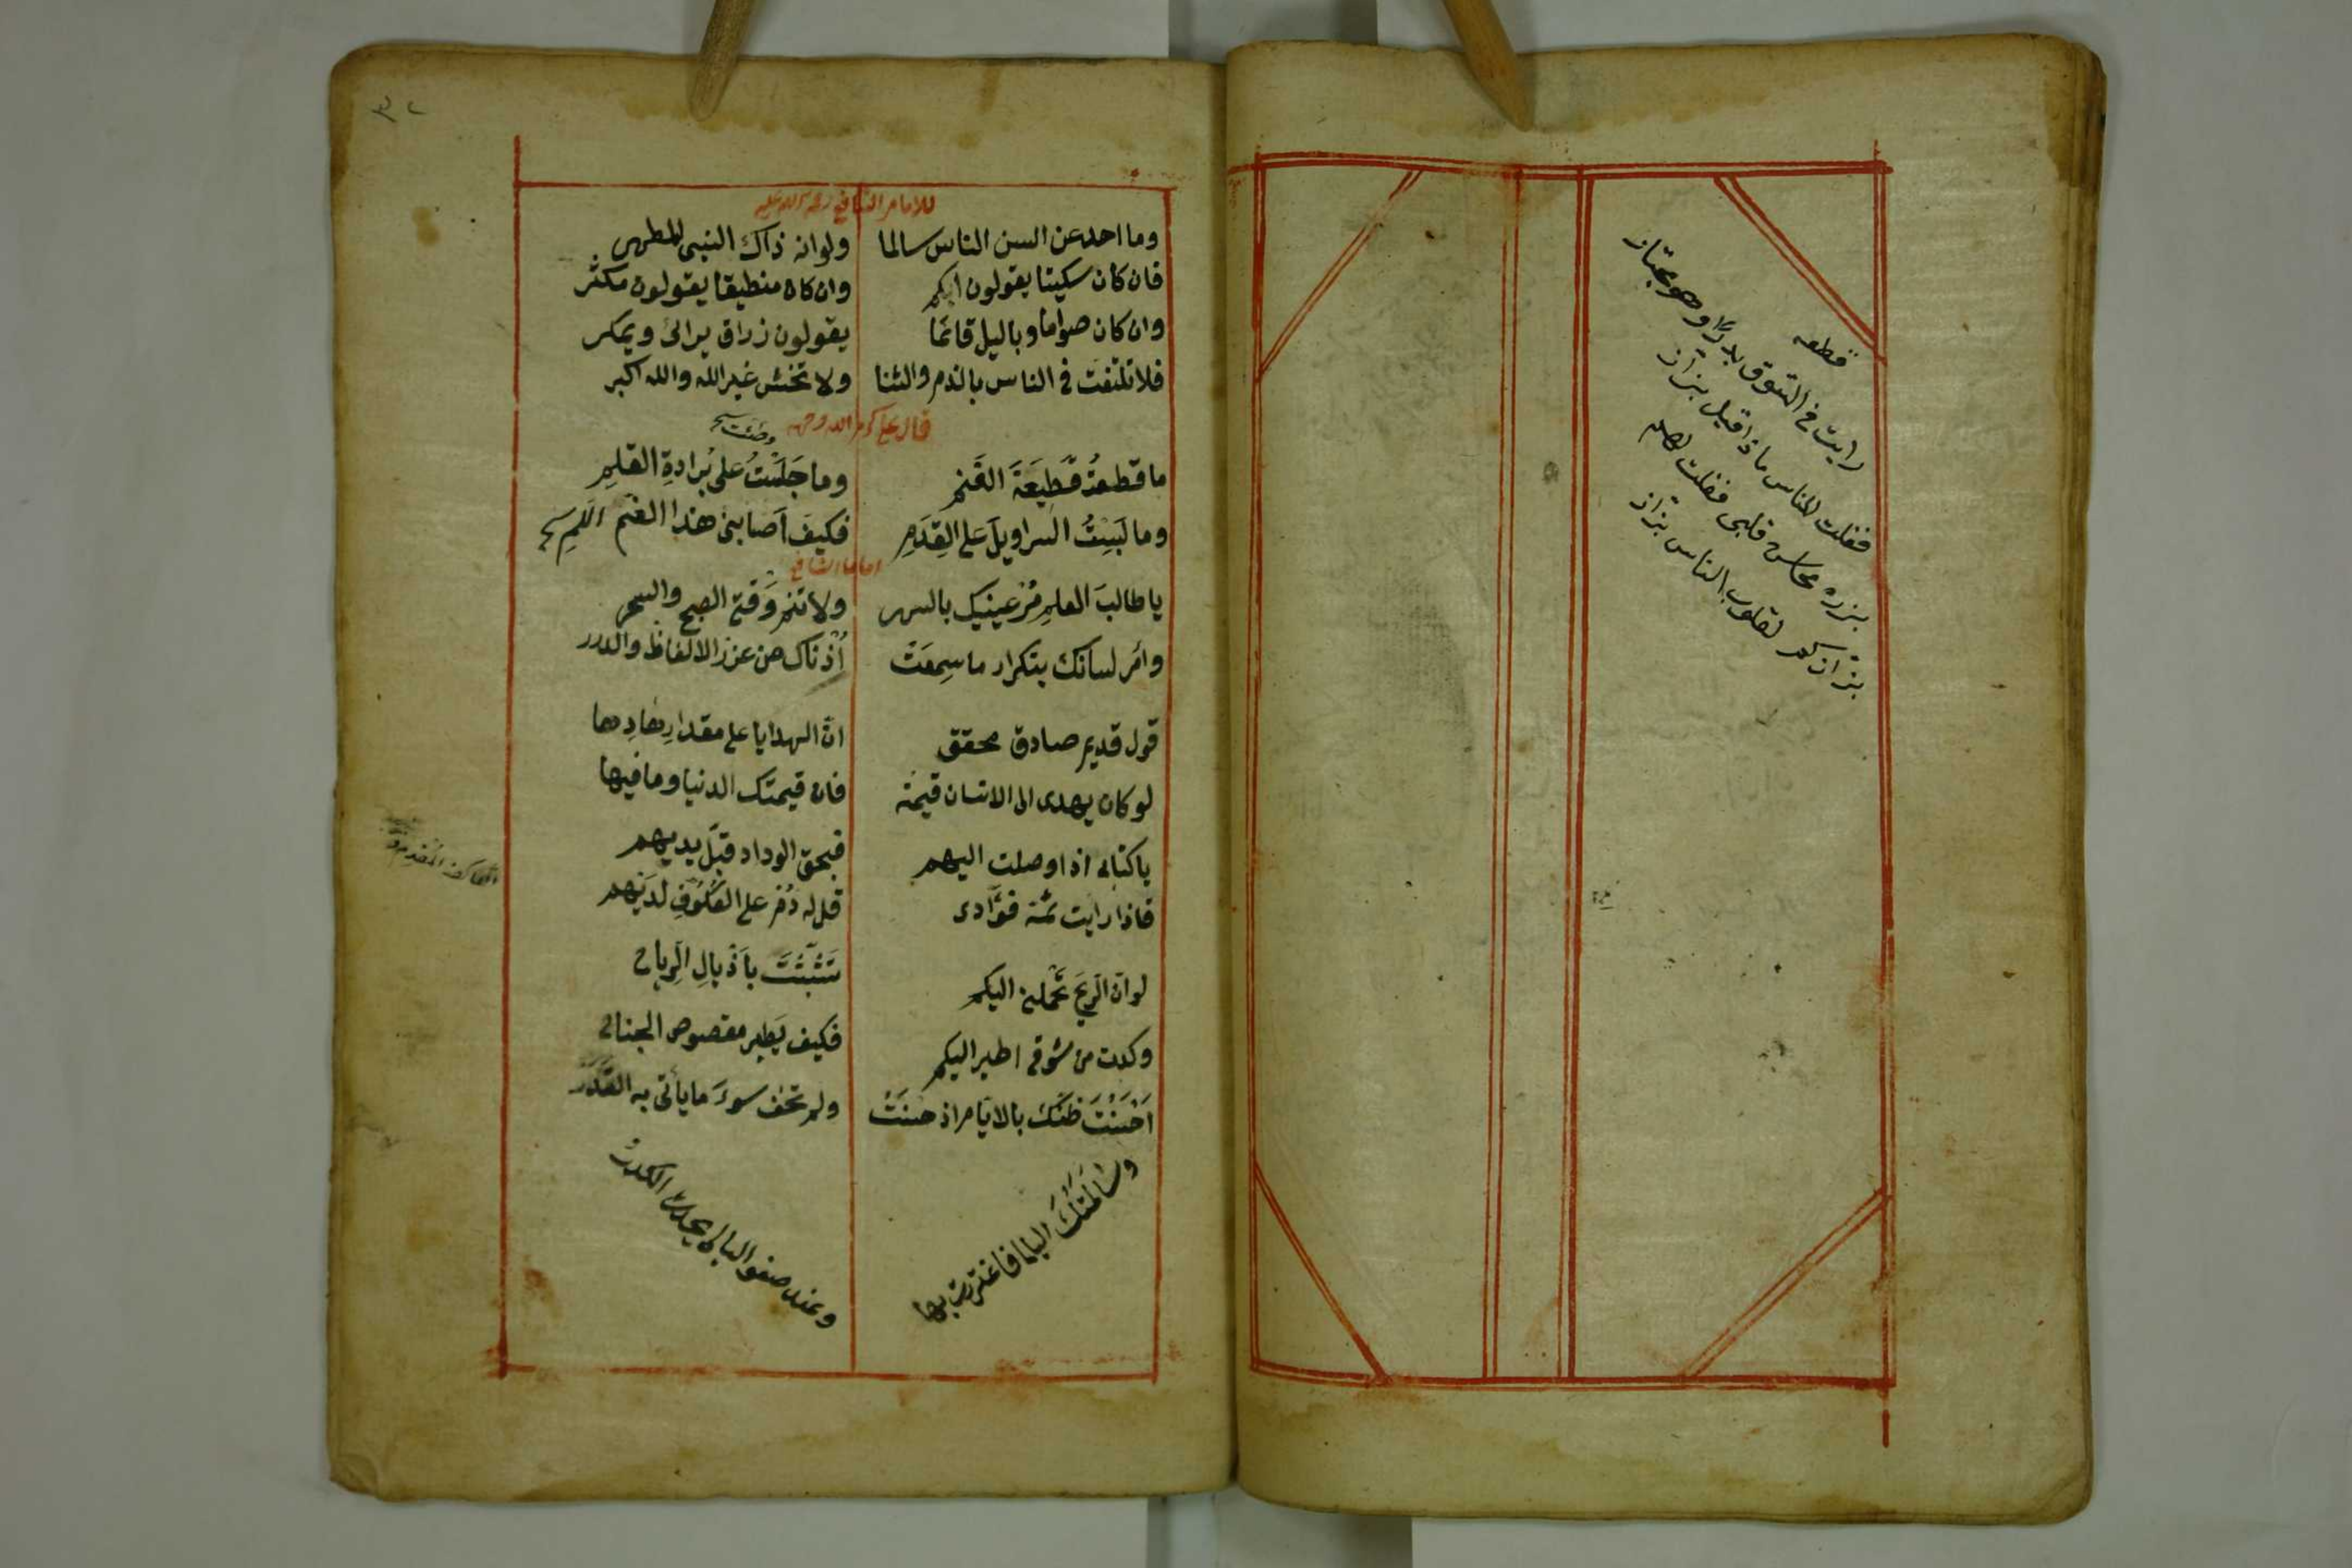 قطعه
رايت في السوق بدرًا وهو مجتاز
فقلت للناس ماذا قيل بزاز
بزره محاسن قلبى فقلت لهم
بزازكم لقلوب الناس بزاز
للامام الشافعي رحمة الله عليه
وما احد عن السن الناس سالما ولو انه ذاك النبى المطهر
فان كان سكيتا يقولون ابكم وان كان منطيقا يقولون مكثر
وان كان صواما وباليل قائما يقولون زراق يرائ ويمكر
فلا تلتفت في الناس بالذم والثنا ولا تخش غير الله والله اكبر
قال علي كرم الله وجهه
ما قطعتُ قَطِيعَةَ الغَنم وما جَلَسْتُ على بُرادةِ القلمِ
وما لَبِسْتُ السراويلَ على القِدَمِ فكيفَ اَصَابنى هذا الغم
امام الشافعي
يا طالبَ العلمِ مُرْ عينيك بالسهر ولا تنم وَقتى الصبح والسحر
وامُر لسانك بتكرار ما سمِعَتْ اُذْناك من عزز الالفاظ والدرر
قول قديم صادق محقق انّ الهدايا على مقدارِ مهادِيها
لو كان يهدى الى الانسان قيمته فان قيمتك الدنيا وما فيها
يا كتابى اذا وصلت اليهم فبحق الوداد قبّل يديهم
فاذا رايت ثمه فؤادى قل له دُمْ على العُكُوفِ لديهم
لو ان الريحَ تحملنى اليكم تشبثتَ باَذْيالِ الرياح
وكدت من شوقى اطير اليكم فكيف يَطير مقصوص الجناح
اَحْسَنْتَ ظنّكَ بالايّام اذ حسنَتْ ولم تخف سوءَ ما يأتى به القَدَر
وسالَمَتْكَ الليالى فاغتررت بها وعند صفو الليالى يحدث الكدر